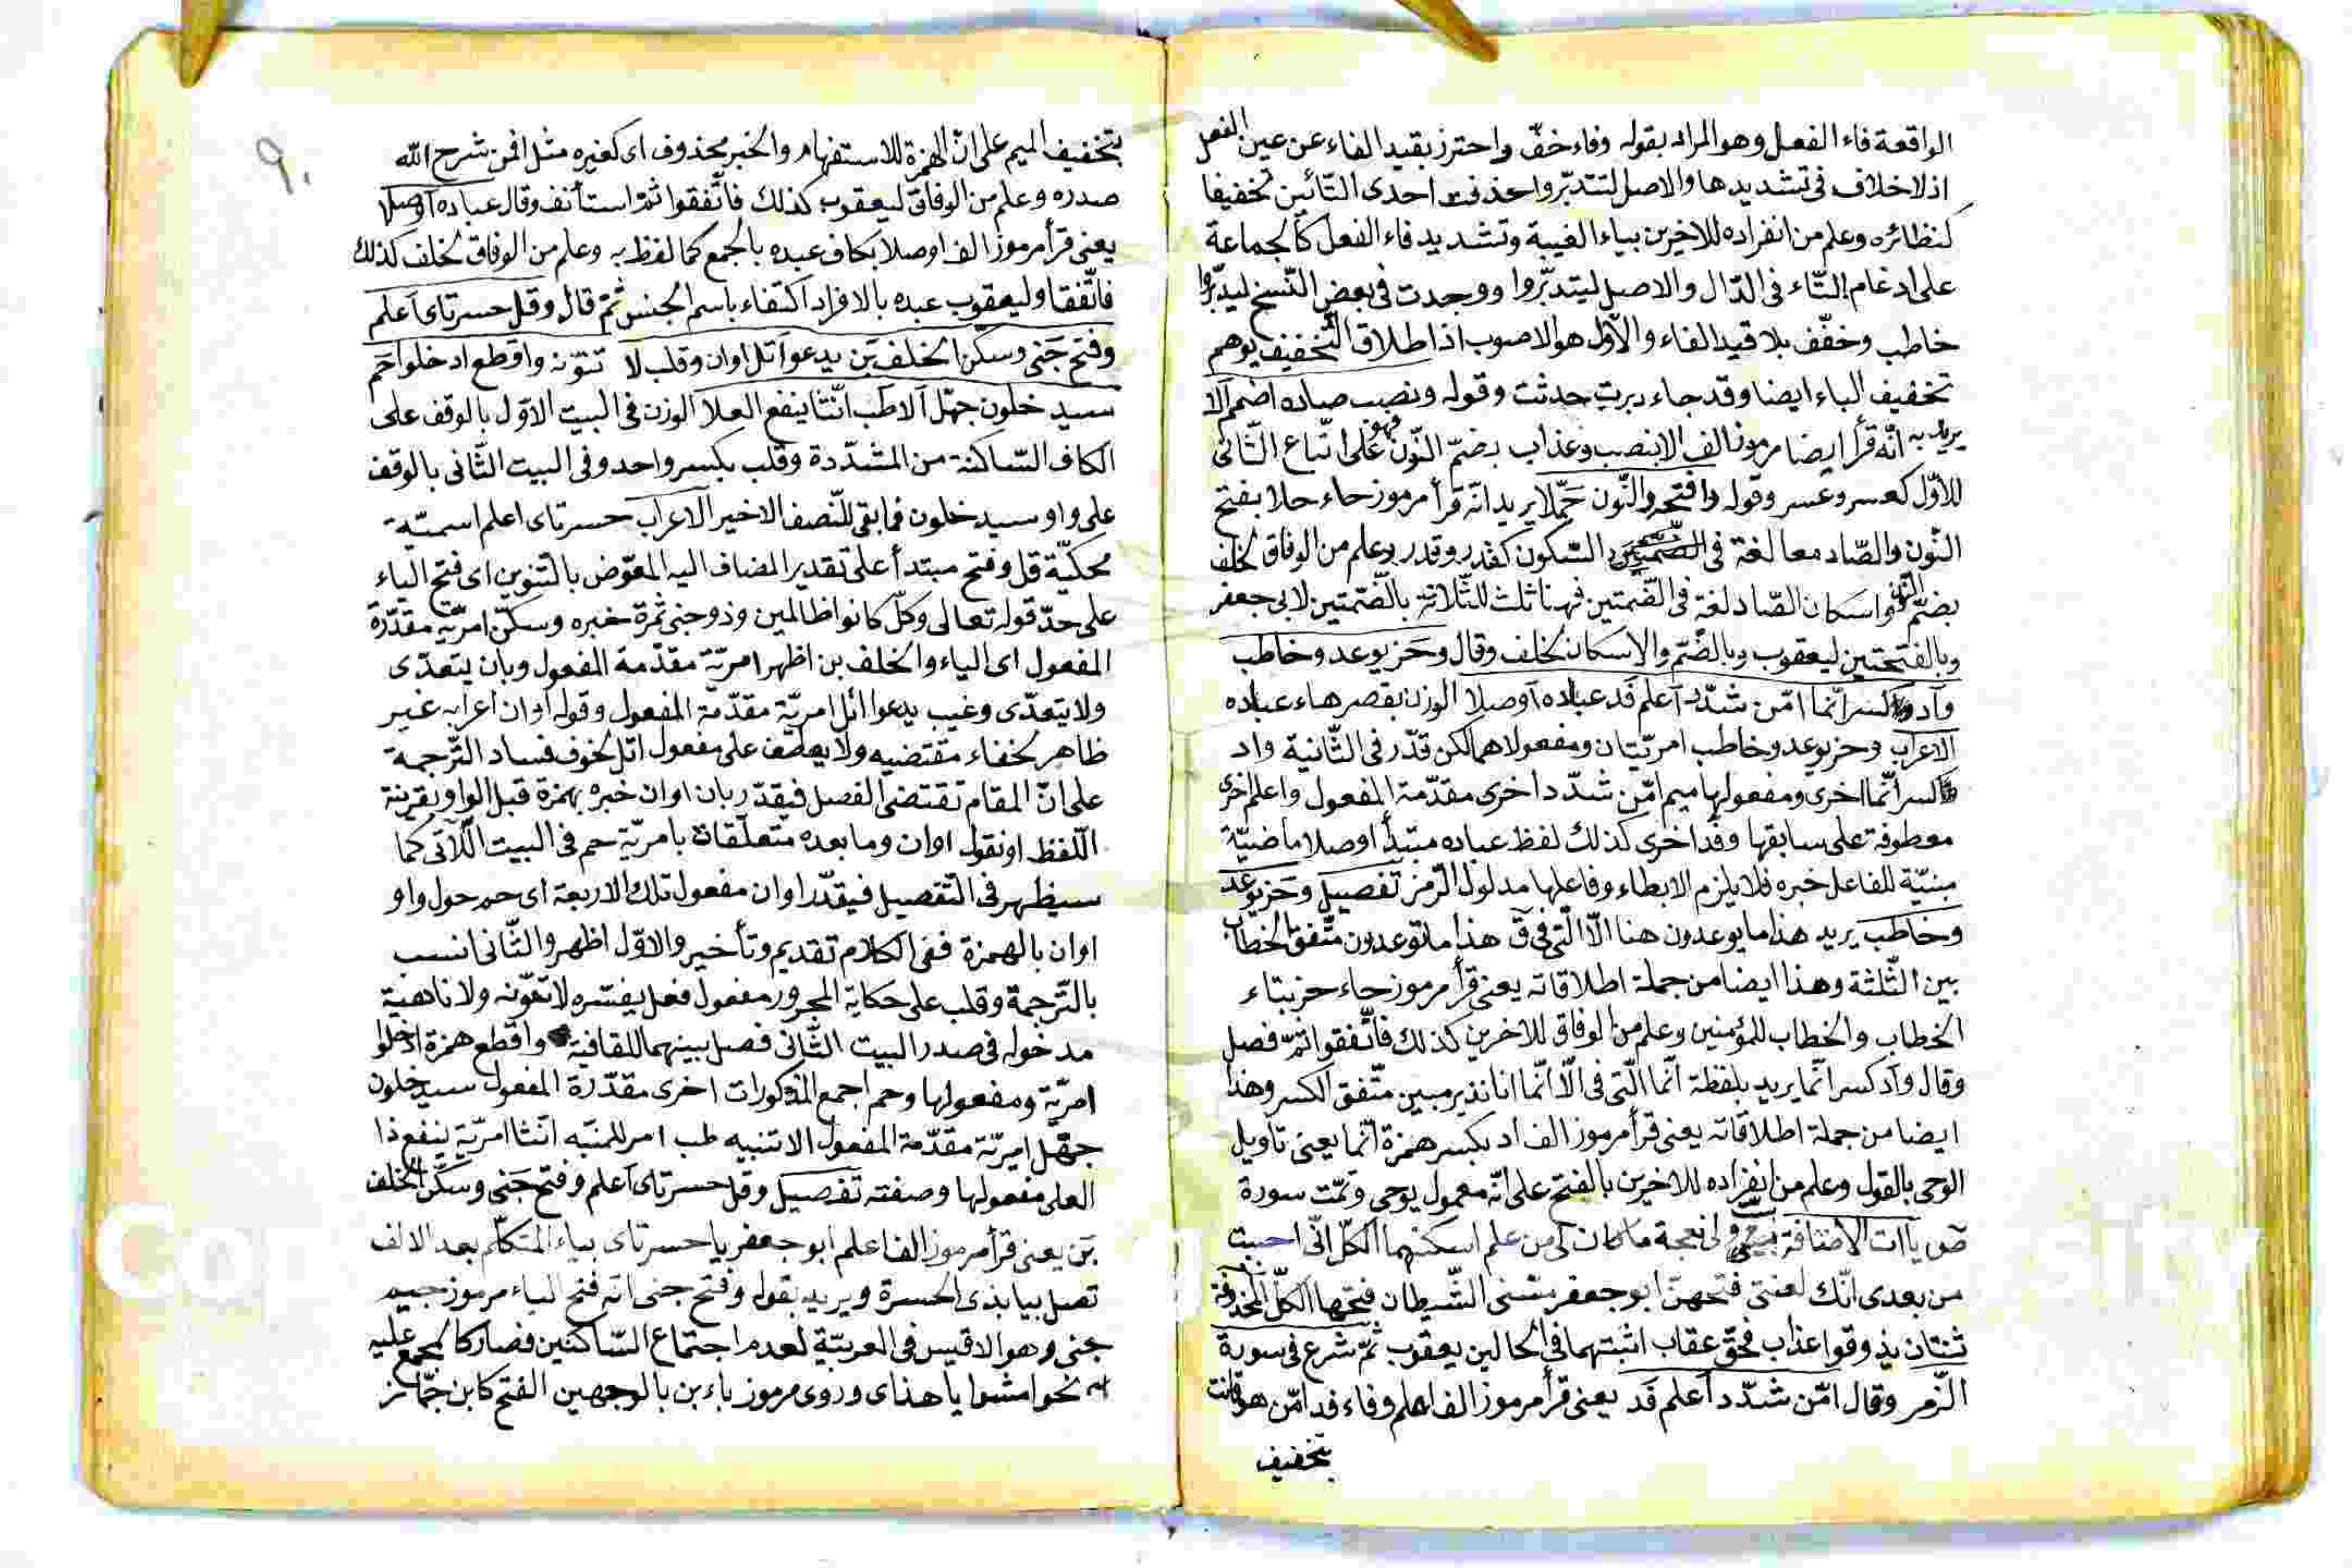 الواقعة فاء الفعل وهو المراد بقوله وفاء خفّ واحترز بقيد الفاء عن عين الفعل
اذ لا خلاف في تشديدها والاصل لتتدبّروا حذفت احدى التّائين تخفيفا
كنظائره وعلم من انفراده للاخرين بياء الغيبة وتشديد فاء الفعل كالجماعة
على ادغام التّاء في الدّال والاصل ليتدبّروا ووجدت في بعض النّسخ ليدبّروا
خاطب وخفّف بلا قيد الفاء والاوّل هو الاصوب اذ اطلاق التّخفيف يوهم
تخفيف الباء ايضا وقد جاء دبرت حدثت وقوله ونصب صاده اضمم الا
يريد به انّه قرأ ايضا مرموز الف الا بنصب وعذاب بضمّ النّون فهو على اتّباع الثّاني
للاوّل كعسر وعسر وقوله وافتحه والنّون حمّلا يريد انّه قرأ مرموز حاء حلا بفتح
النّون والصّاد معا لغة في السّكون كقدر وقدر وعلم من الوفاق لخلف
بضمّ النّون واسكان الصّاد لغة في الضّمتين فهنا ثلث للثّلاثة بالضّمّتين لابي جعفر
وبالفتحتين ليعقوب وبالضّمّ والاسكان لخلف وقال وحز يوعد وخاطب
وآد كسر انّما امّن شدّد اعلم فد عباده اوصلا الوزن بقصر هاء عباده
الاعراب وحز يوعد وخاطب امريّتان ومفعولاهما لكن قدّر في الثّانية واد
كسر انّما اخرى ومفعولها ميم امّن شدّد اخرى مقدّمة المفعول واعلم اخرى
معطوفة على سابقها وفد اخرى كذلك لفظ عباده مبتدأ اوصلا ماضيّة
مبنيّة للفاعل خبره فلا يلزم الايطاء وفاعلها مدلول الرّمز تفصيل وحز يوعد
وخاطب يريد هذا ما يوعدون هنا الّا الّتي في ق هذا ما توعدون متّفق الخطاب
بين الثّلثة وهذا ايضا من جملة اطلاقاته يعني قرأ مرموز حاء حز بتاء
الخطاب والخطاب للمؤمنين وعلم من الوفاق للاخرين كذلك فاتّفقوا ثمّ فصل
وقال وآد كسر انّما يريد بلفظة انّما الّتي في الّا انّما انا نذير مبين متّفق الكسر وهذا
ايضا من جملة اطلاقاته يعني قرأ مرموز الف اد بكسر همزة انّما يعني تاويل
الوحي بالقول وعلم من انفراده للاخرين بالفتح على انّه معمول يوحى وتمّت سورة
ص ياآت الاضافة ولي نعجة ما كان لي من علم اسكنهما الكلّ انّي احببت
من بعدي انّك لعنتي فتحهنّ ابو جعفر مسّني الشّيطان فتحها الكلّ المحذوفة
ثنتان يذوقوا عذاب فحقّ عقاب اثبتهما في الحالين يعقوب ثمّ شرع في سورة
الزّمر وقال امّن شدّد اعلم فد يعني قرأ مرموز الف اعلم وفاء فد امّن هو قانت
بتخفيف
٩٠
بتخفيف الميم على انّ الهمزة للاستفهام والخبر محذوف اى كغيره مثل افمن شرح الله
صدره وعلم من الوفاق ليعقوب كذلك فاتّفقوا ثمّ استأنف وقال عباده اوصلا
يعني قرأ مرموز الف اوصلا بكاف عبده بالجمع كما لفظ به وعلم من الوفاق لخلف كذلك
فاتّفقا وليعقوب عبده بالافراد اكتفاء باسم الجنس ثمّ قال وقل حسرتاى اعلم
وفتح جنى وسكّن الخلف بن يدعوا اتل اوان وقلب لا تنوّنه واقطع ادخلوا حم
سيدخلون جهّل الا طب انّثا ينفع العلا الوزن في البيت الاوّل بالوقف على
الكاف السّاكنة من المشدّدة وقلب بكسر واحد وفي البيت الثّاني بالوقف
على واو سيدخلون فما بقي للنّصف الاخير الاعراب حسرتاى اعلم اسميّة
محكيّة قل وفتح مبتدأ على تقدير المضاف اليه المعوّض بالتّنوين اى فتح الياء
على حدّ قوله تعالى وكلّ كانوا ظالمين وذو جنى ثمرة خبره وسكّن امريّة مقدّرة
المفعول اى الياء والخلف بن اظهر امريّة مقدّمة المفعول وبان يتعدّى
ولا يتعدّى وغيب يدعوا اتل امريّة مقدّمة المفعول وقوله اوان اعرابه غير
ظاهر لخفاء مقتضيه ولا يعطف على مفعول اتل لخوف فساد التّرجمة
على انّ المقام تقتضى الفصل فيقدّر بان اوان خبره بهمزة قبل الواو بقرينة
اللّفظ او نقول اوان وما بعده متعلّقات بامريّة حم في البيت الآتي كما
سيظهر في التّفصيل فيقدّر اوان مفعول تلك الاربعة اى حم حول واو
اوان بالهمزة ففي الكلام تقديم وتأخير والاوّل اظهر والثّاني انسب
بالتّرجمة وقلب على حكاية المجرور مفعول فعل يفسّره لا تنوّنه ولا ناهية
مدخوله في صدر البيت الثّاني فصل بينهما للقافية واقطع همزة ادخلوا
امريّة ومفعولها وحم اجمع المذكورات اخرى مقدّرة المفعول سيدخلون
جهّل امريّة مقدّمة المفعول الا تنبيه طب امر للمنبّه انّثا امريّة ينفع ذا
العلى مفعولها وصفته تفصيل وقل حسرتاى اعلم وفتح جنى وسكّن الخلف
بن يعني قرأ مرموز الف اعلم ابو جعفر يا حسرتاى بياء المتكلّم بعد الالف
تصل بيا بذى الحسرة ويريد بقوله وفتح جنى انّه فتح الياء مرموز جيم
جنى وهو الاقيس في العربيّة لعدم اجتماع السّاكنين فصار كالمجمع عليه
نحو امشوا يا هذاى وروى مرموز باء بن بالوجهين الفتح كابن جمّاز